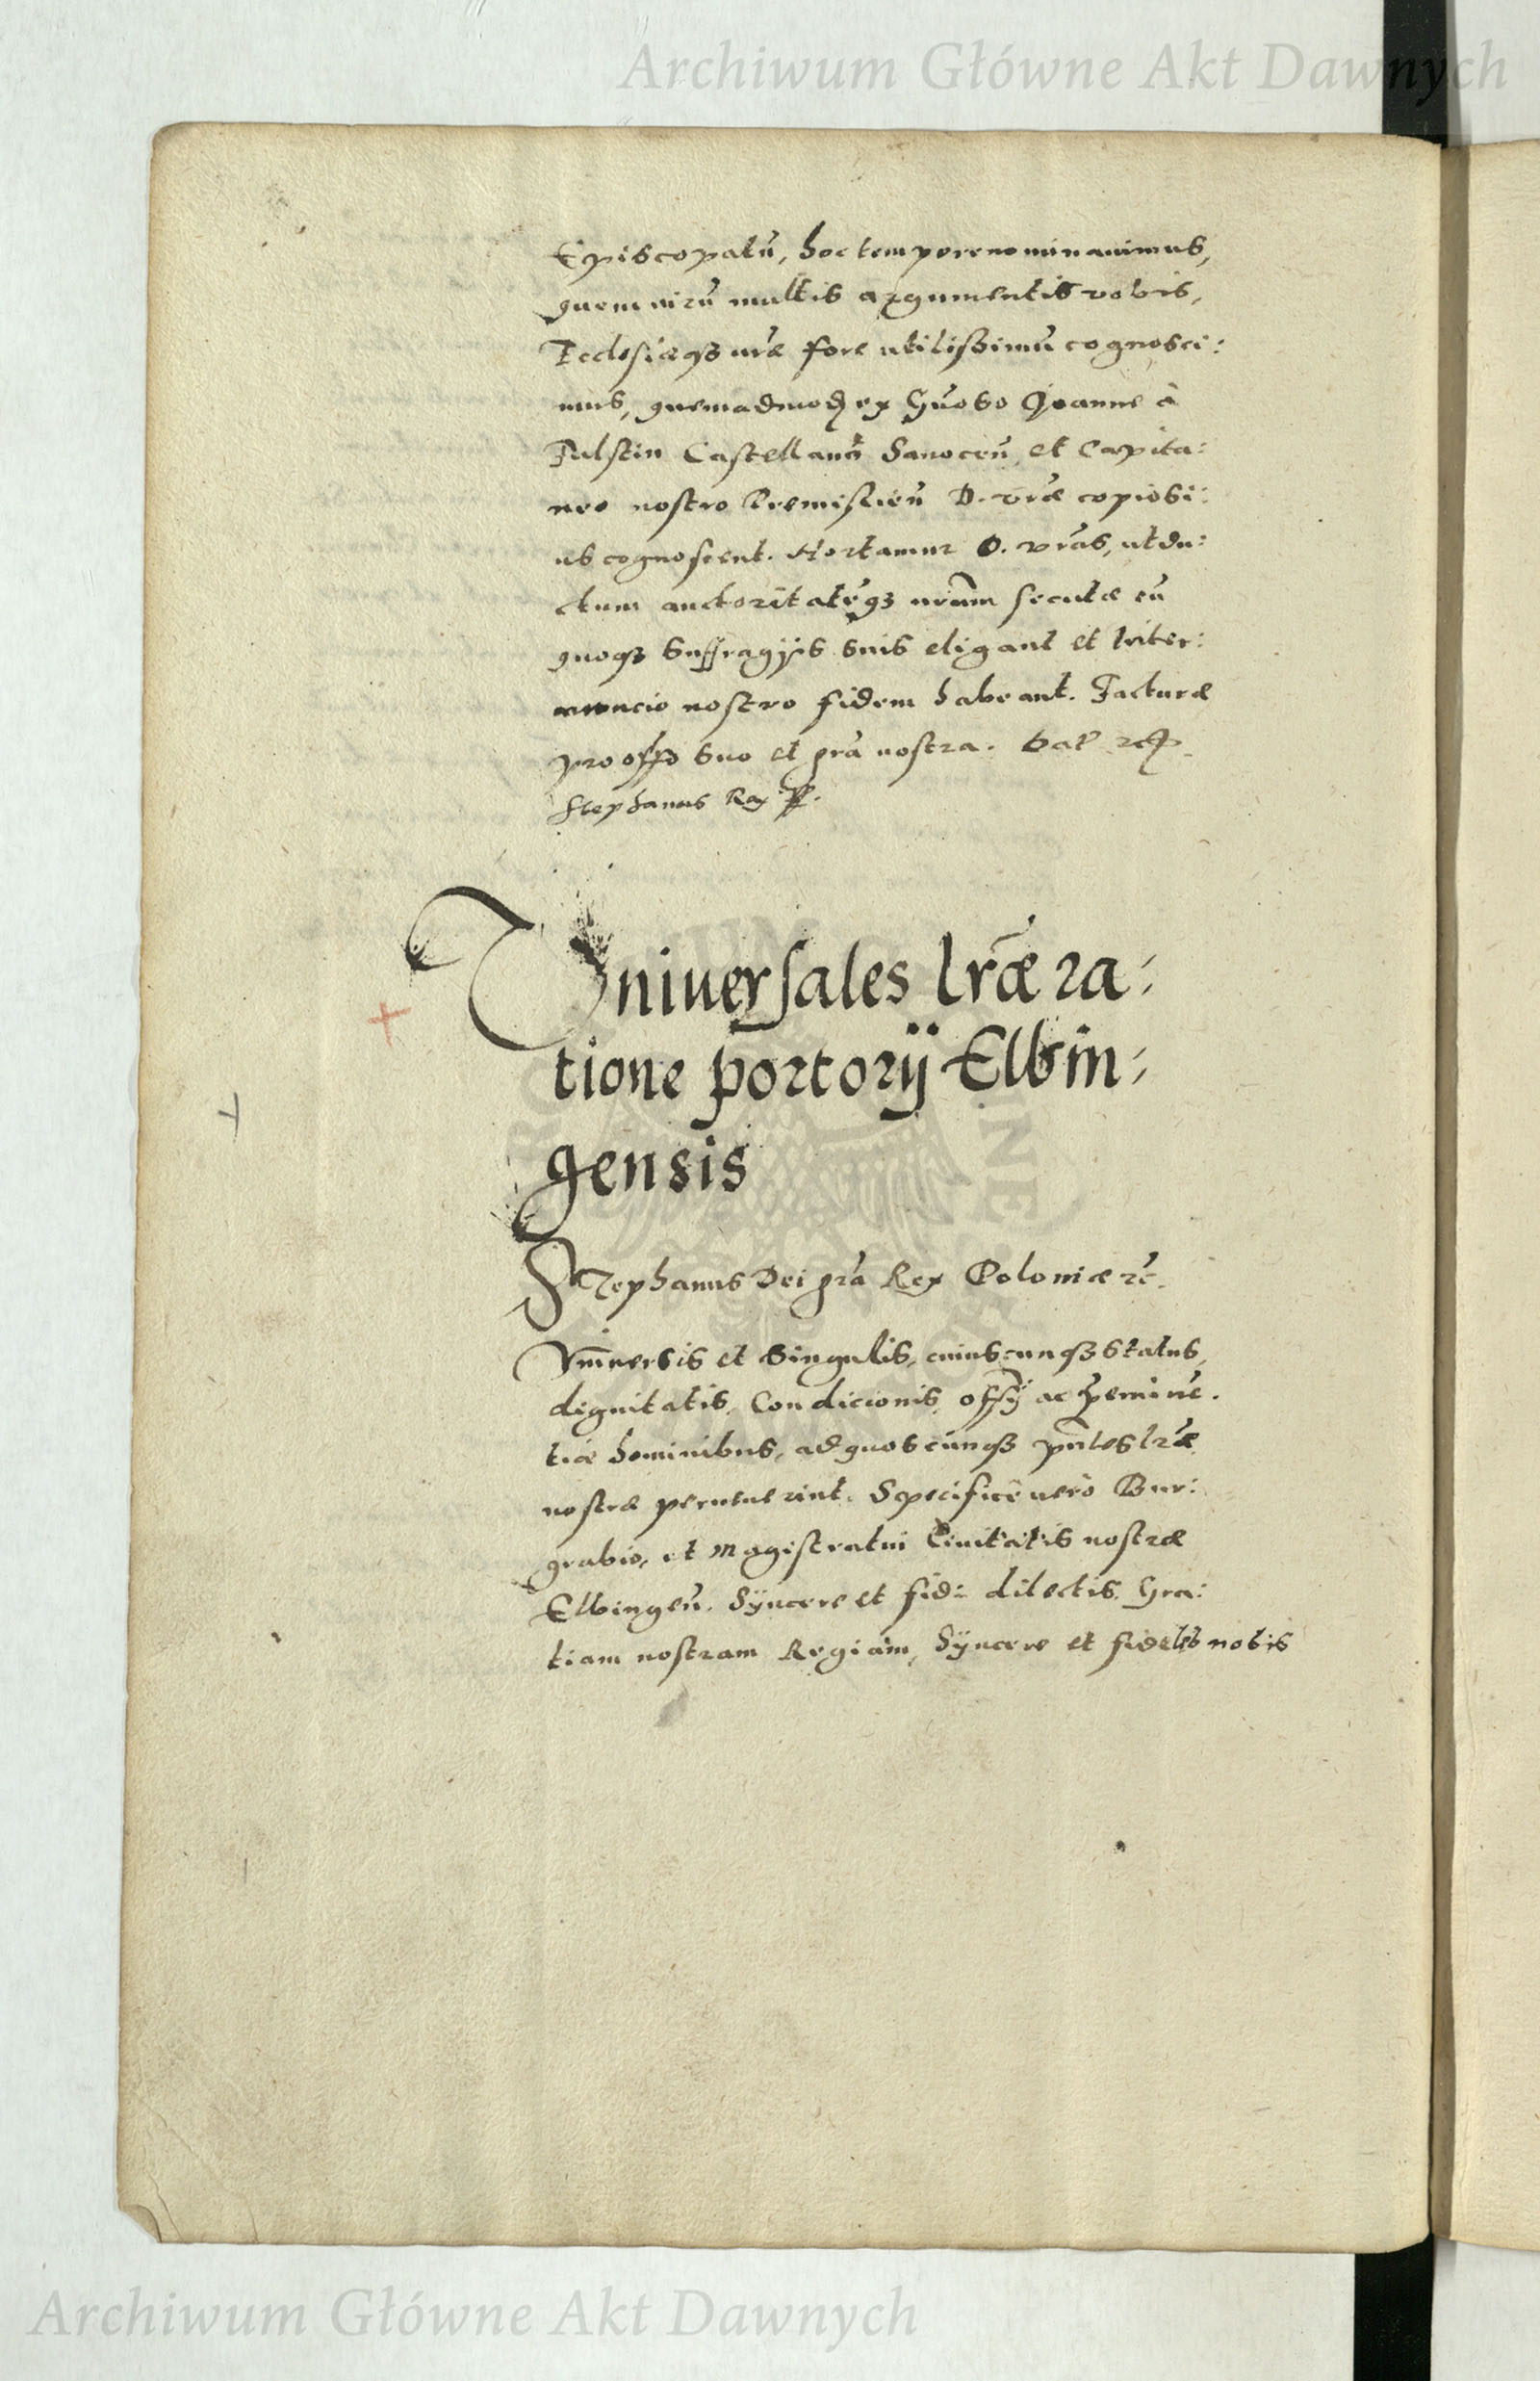 Archiwum Główne Akt Dawnych
Episcopatū, hoc tempore nominauimus,
quem uirū multis argumentis vobis,
Ecclesiæqȝ uræ fore utilissimū cognosci:
mus, quemadmodȩ ex Gñoso Joanne à
Fulstin Castellano Sanoceñ, et Capita:
neo nostro Premislieñ D. vræ copiosi:
us cognoscent. Hortamur D. vras, ut du:
ctum auctoritatēqȝ nram secutæ eū
quoqȝ Suffragijs suis eligant et Inter:
nuncio nostro fidem habeant. Facturæ
pro offo suo et gra nostra. Dat
Stephanus Rex
Vniuersales lræ ra:
tione portorij Elbin:
gensis
Stephanus Dei gra Rex Poloniæ rc.
Vniuersis et Singulis, cuiuscunqȝ status,
dignitatis, Condicionis, offij ac p̄eminē.
tiæ hominibus, ad quoscunqȝ pn̄tes lræ
nostræ peruenerint. Specificè uerò Bur:
grabio, et Magistratui Ciuitatis nostræ
Elbingeñ. Syncere et fid: dilectis. Gra:
tiam nostram Regiam, Syncere et fideles nobis
Archiwum Główne Akt Dawnych